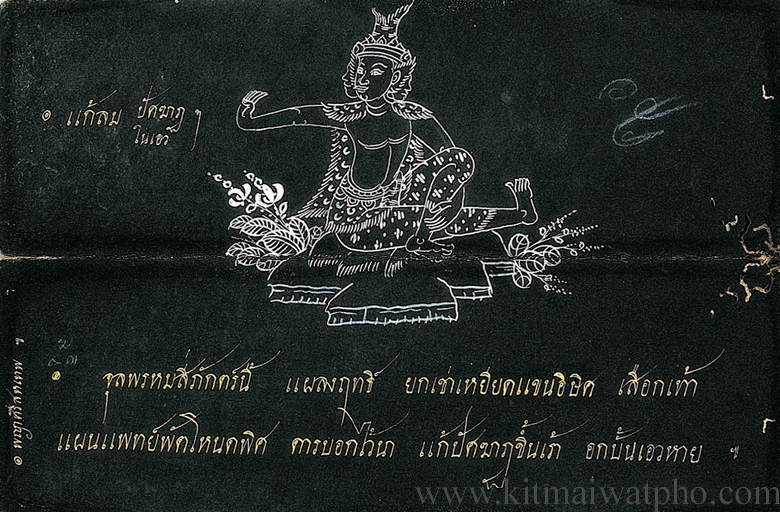 ๏ แก้ลม ปัดฆาฏ ฯ
ในเอว
๏ จุลพรหมสี่ภักตร์นี้ แผลงฤทธิ ยกเข่าเหยียดแขน เสือกเท้า
แผนแพทย์ ดารบอกไว้นา แก้ปัดฆาฏขึ้นเร้า อกบั้นเอวหาย ๚
๏ พญาศรีสหเทพ ฯ
www.kitmaiwatpho.com